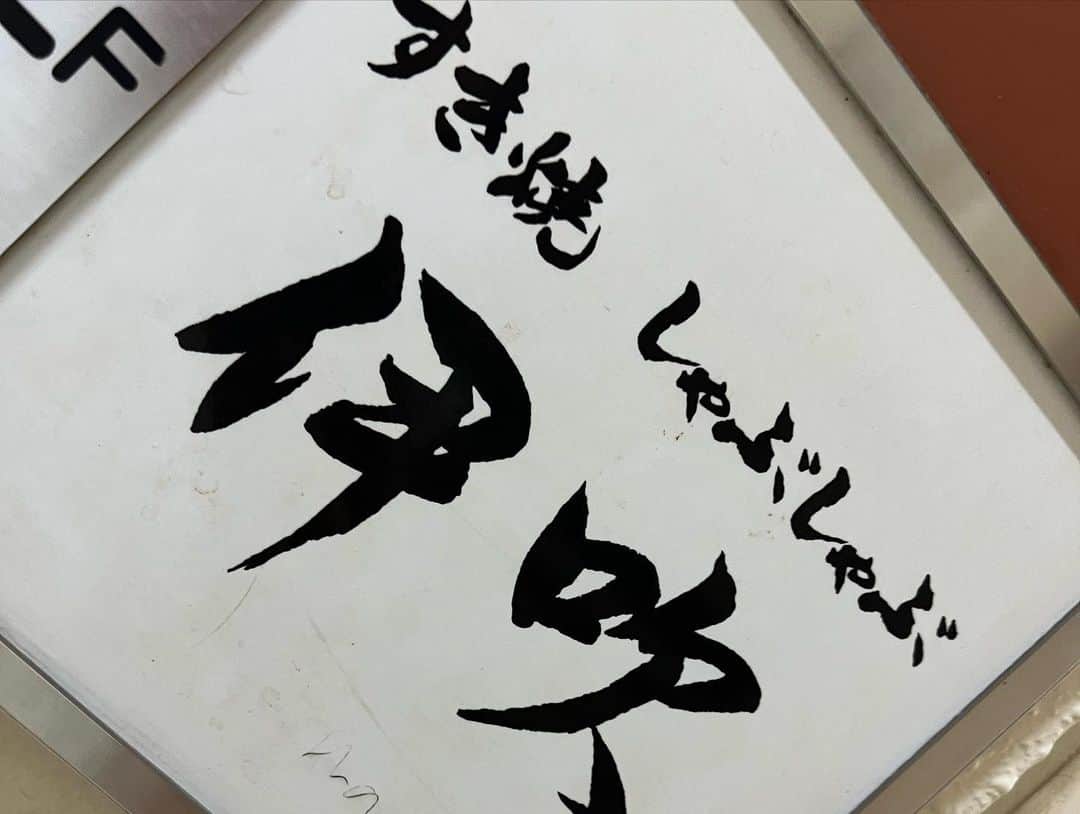 F
すき焼 しゃぶしゃぶ
伊吹